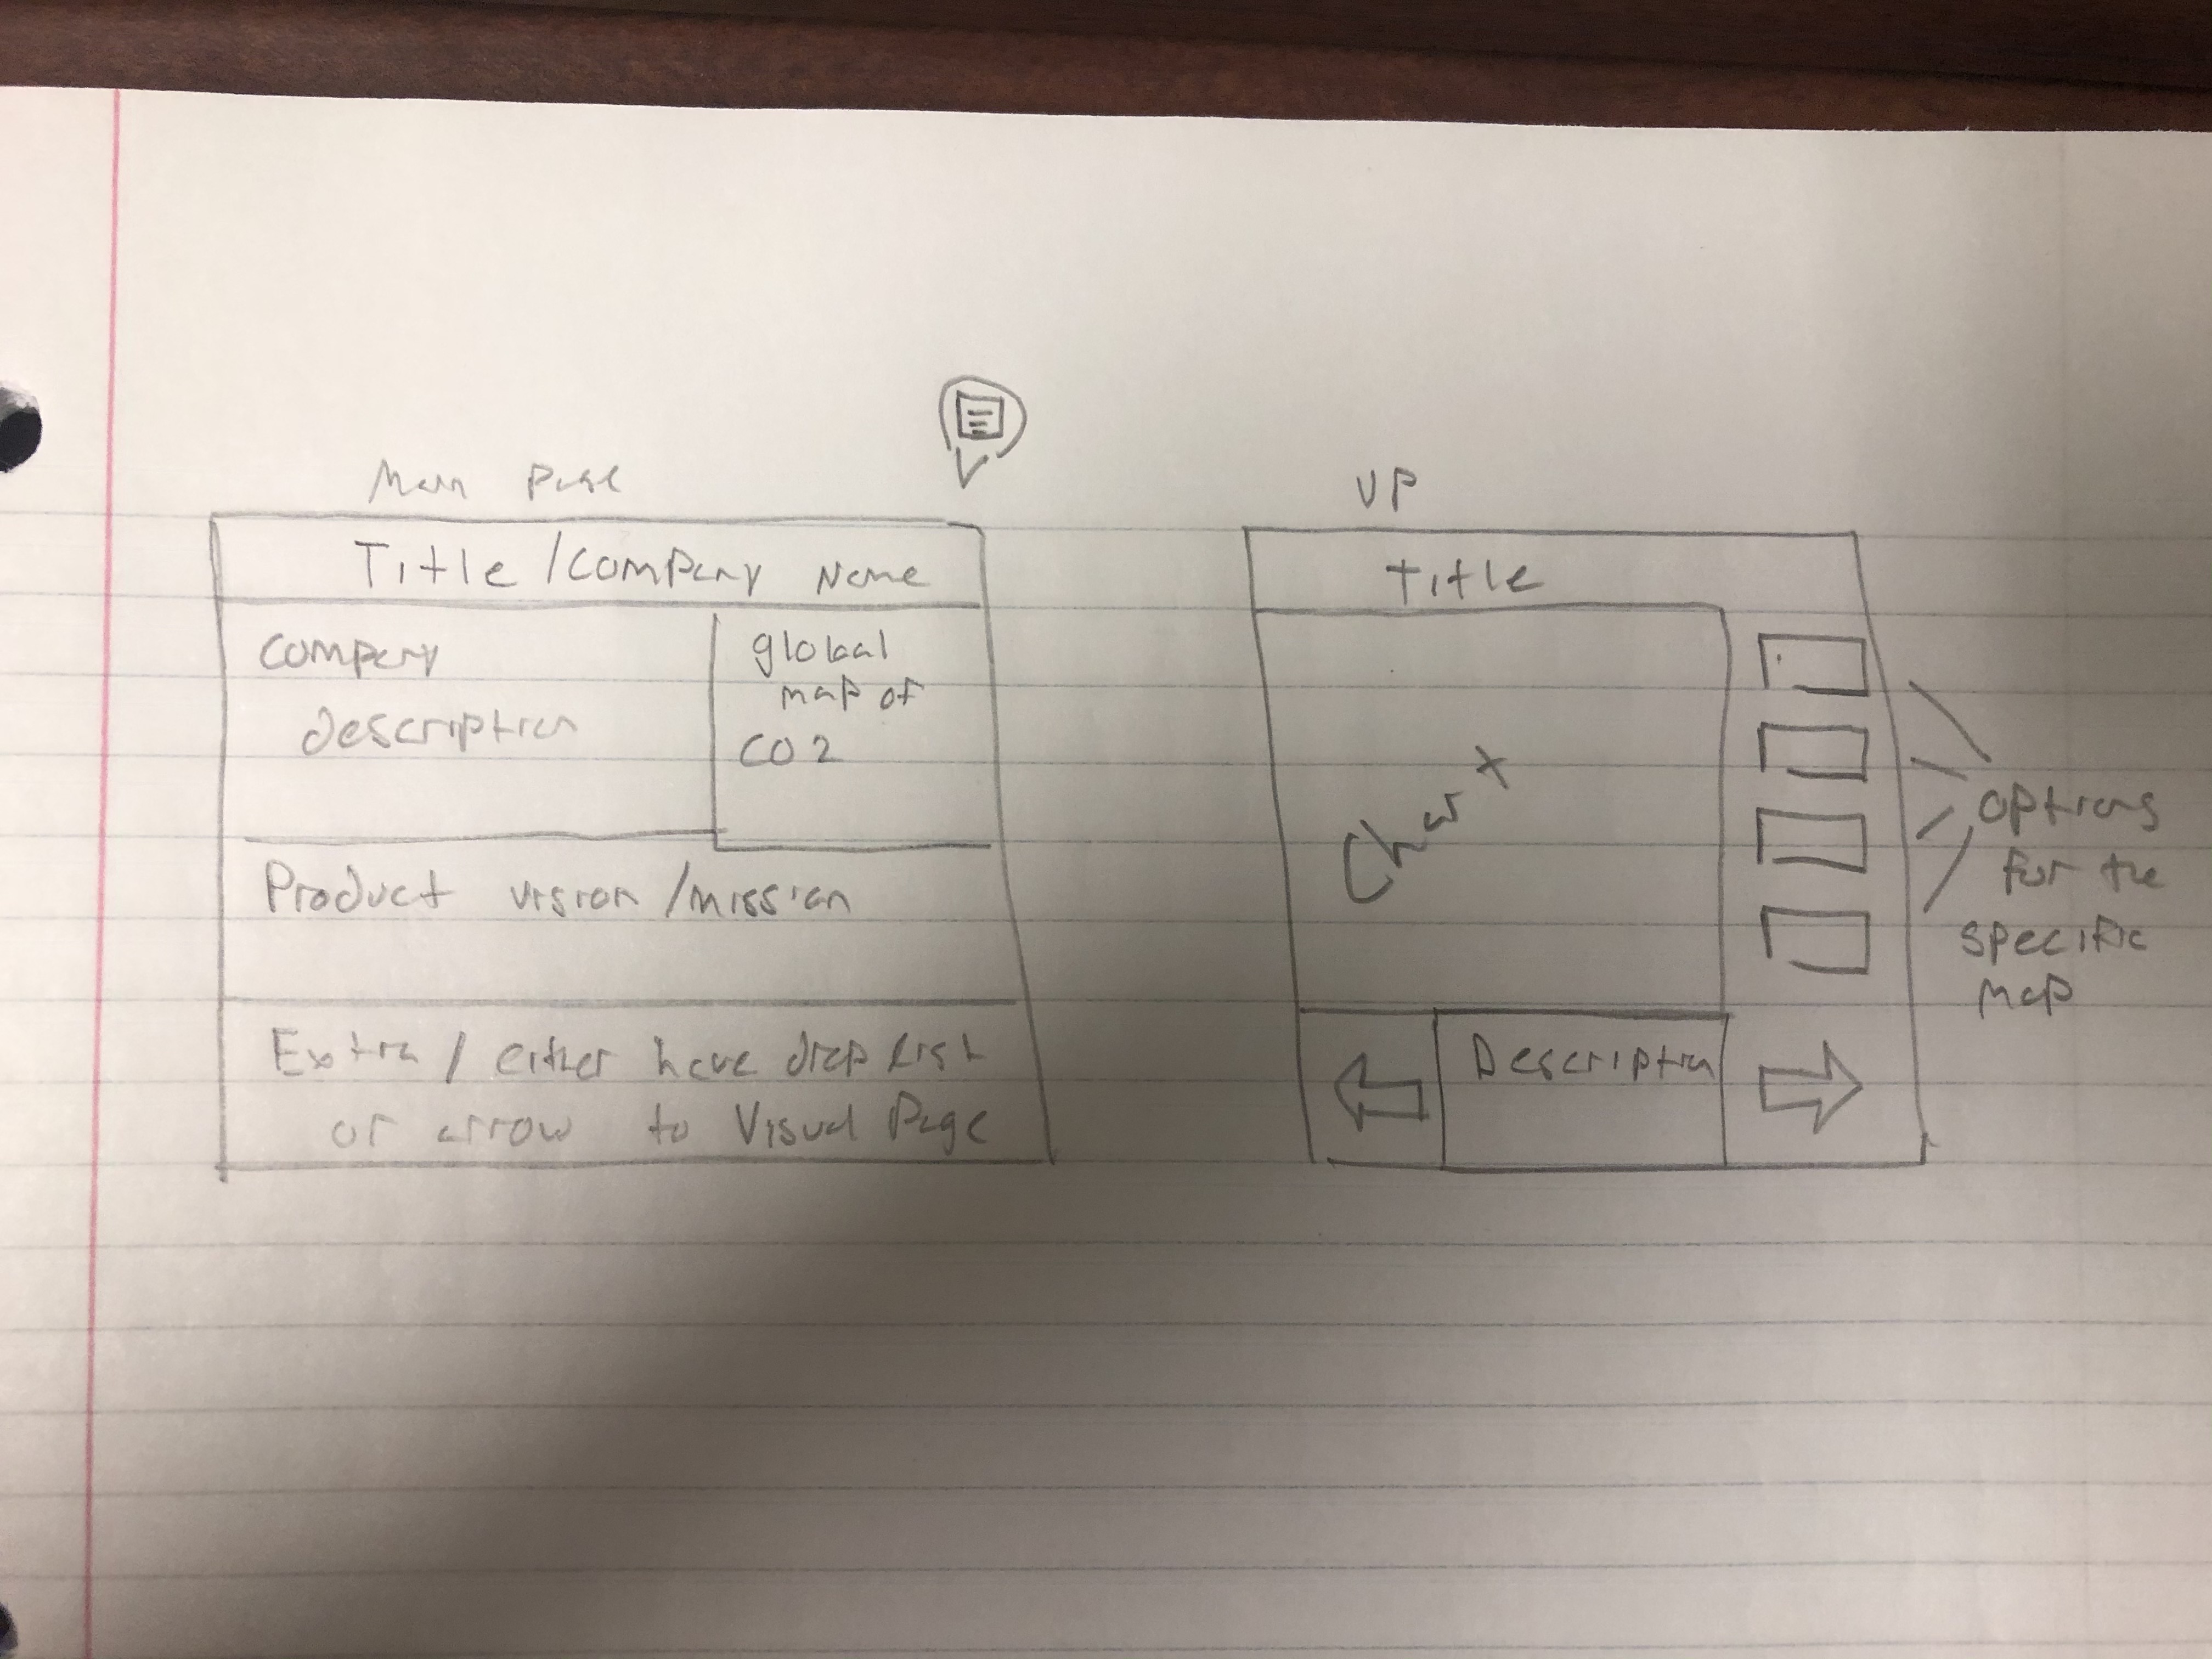 Main Page
Title / Company Name
Company
description
global
map of
CO2
Product vision / mission
Extra / either have drop list
or arrow to Visual Page
VP
Title
Chart
options
for the
specific
map
Description